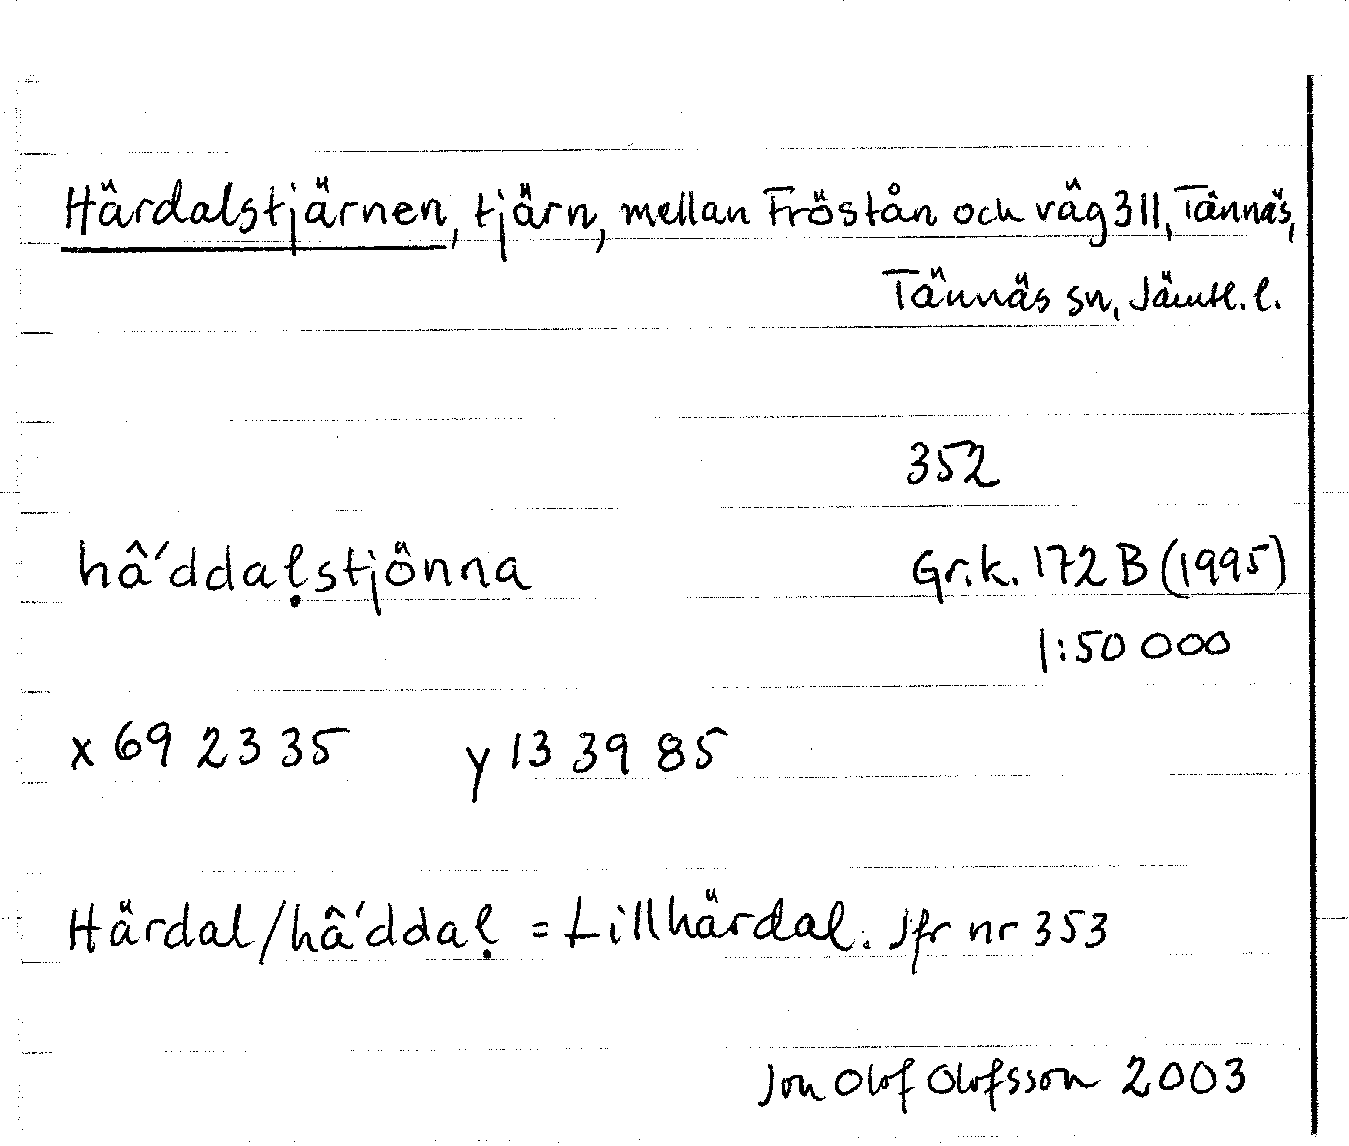 Härdalstjärnen, tjärn, mellan Fröstån och väg 311, Tännäs,
Tännäs sn, Jämtl. l.
352
hâ´ddaḷstjönna Gr.k. 172 B (1995)
1:50 000
x 69 23 35 y 13 39 85
Härdal/hâ´ddaḷ = Lillhärdal. Jfr nr 353
Jon Olof Olofsson 2003